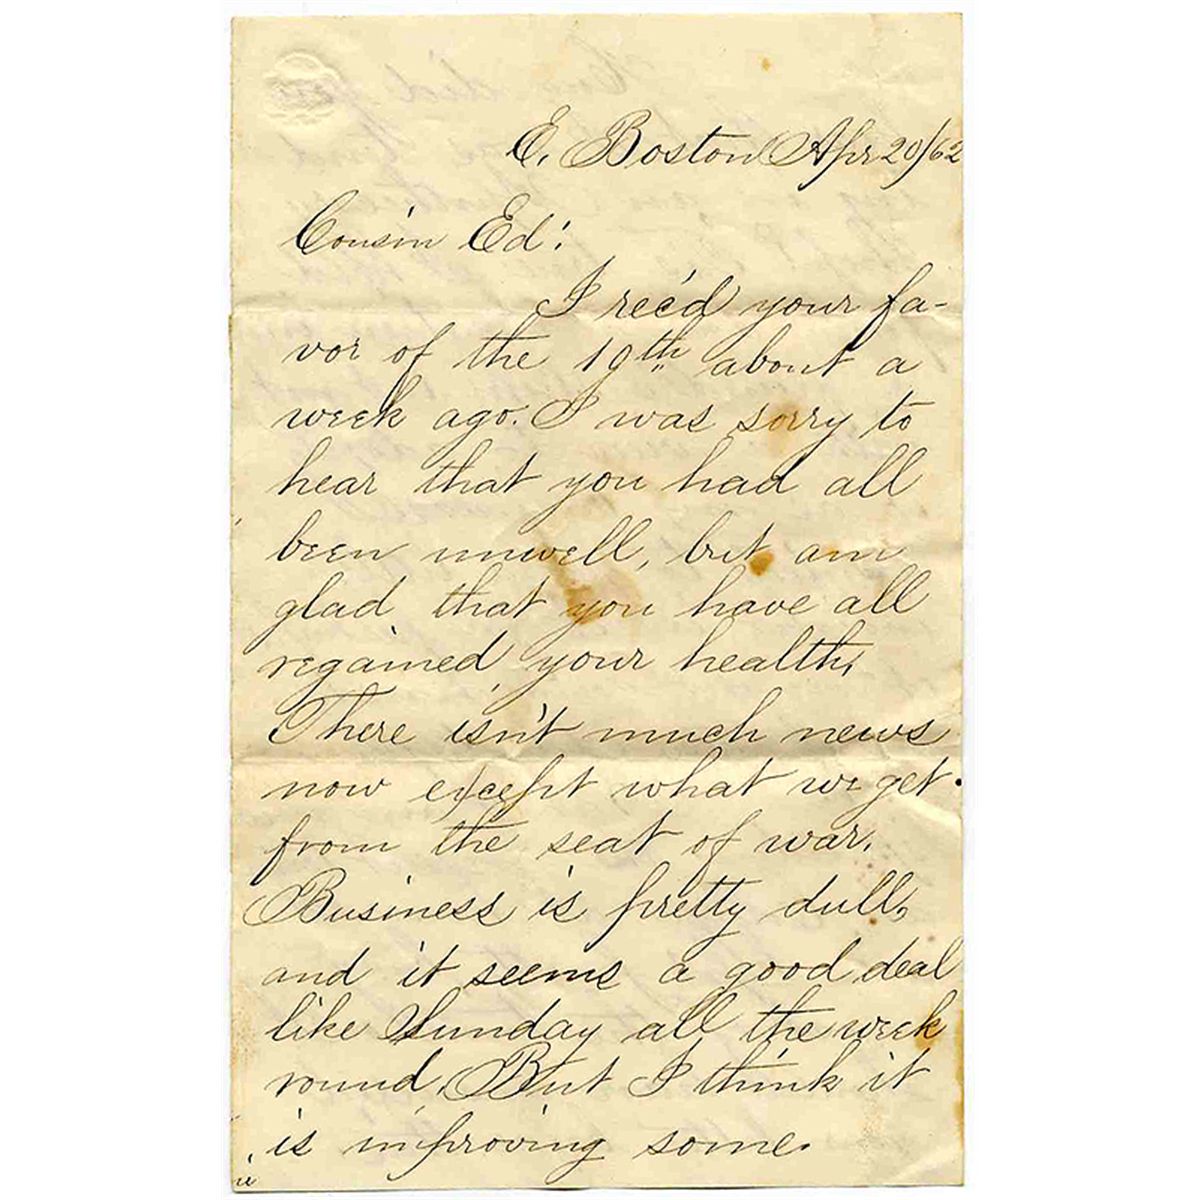 E. Boston Apr 20/62
Cousin Ed:
I rec'd your fa-
vor of the 19th about a
week ago. I was sorry to
hear that you had all
been unwell, but am
glad that you have all
regained your health,
There isn't much news
now except what we get
from the seat of war.
Business is pretty dull,
and it seems a good deal
like Sunday all the week
round. But I think it
is improving some.